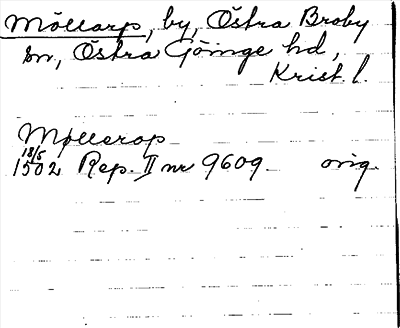 Möllarp, by, Östra Broby
sn, Östra Göinge hd,
Krist. l.
Møllerop
18/5
1502 Rep. II nr 9609 orig.